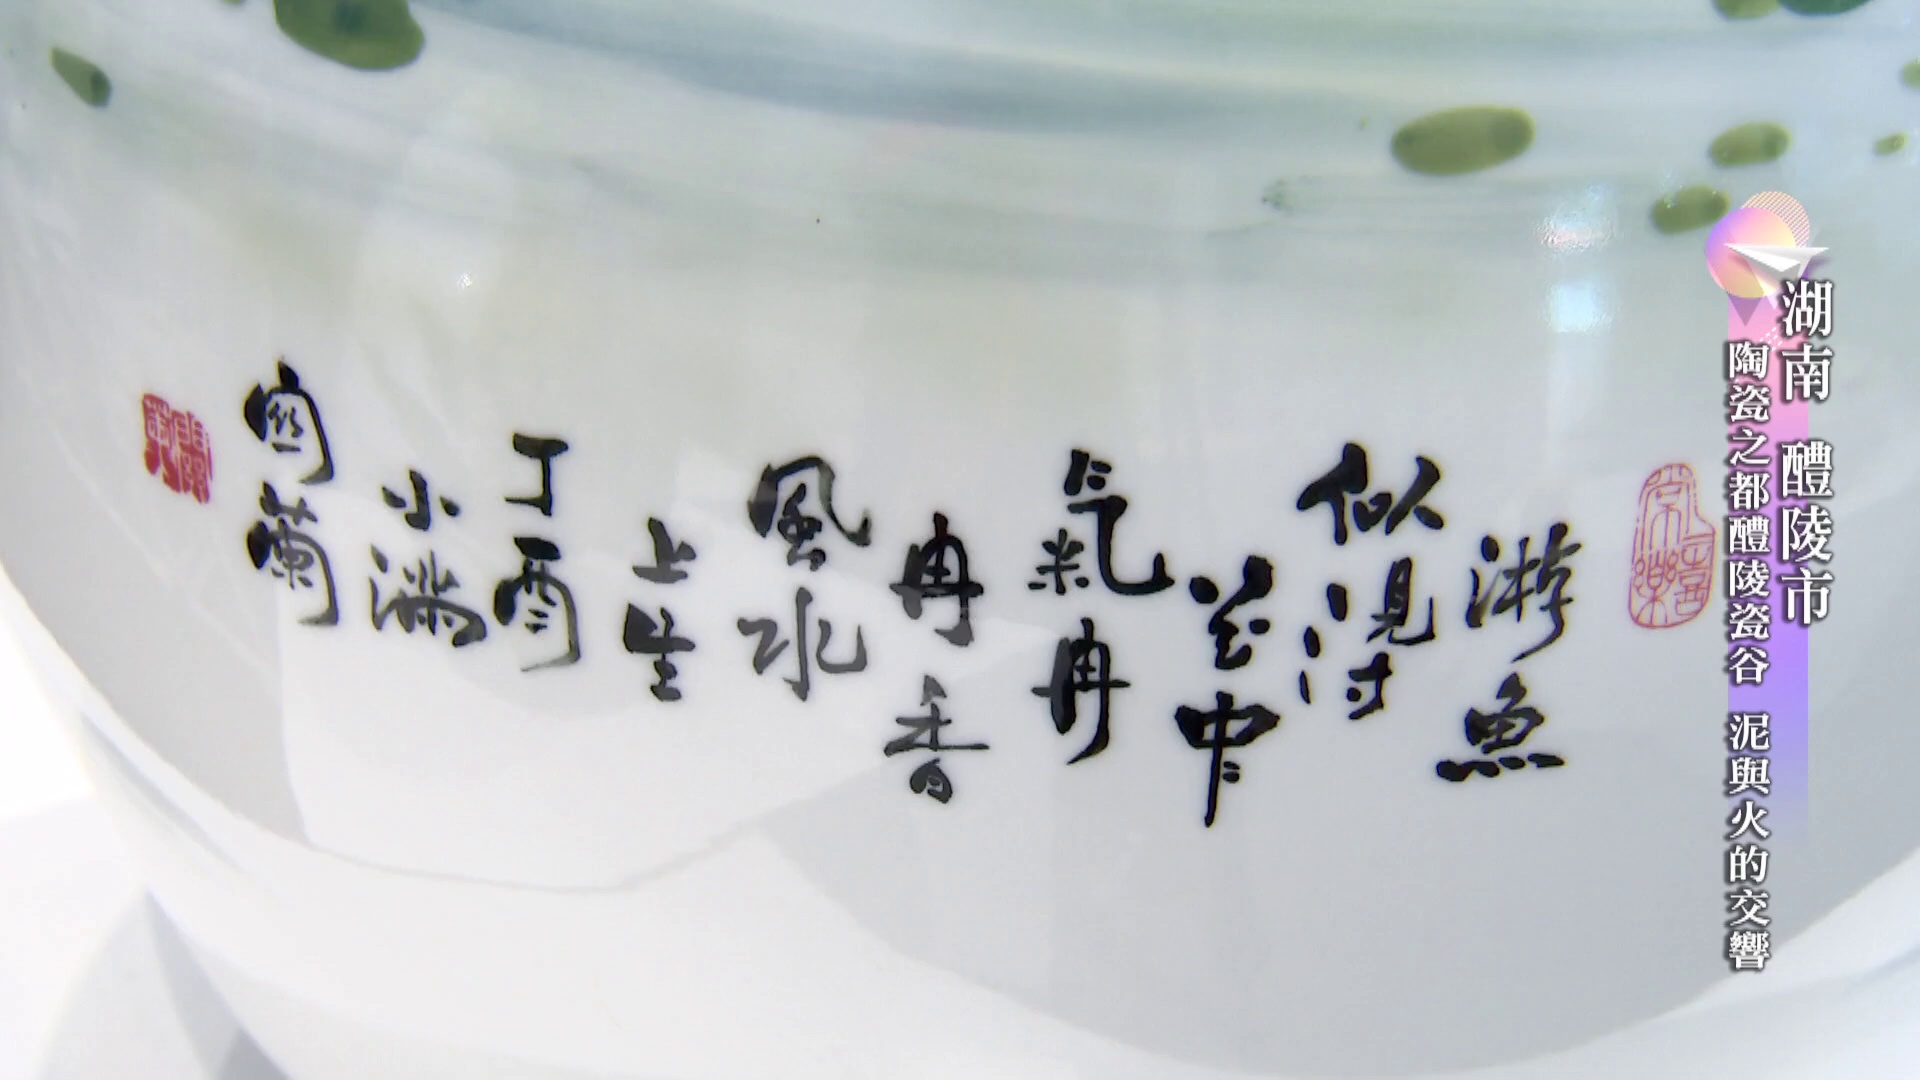 湖南 醴陵市
陶瓷之都醴陵瓷谷 泥與火的交響
游魚
似淂
花中
氣冉
冉香
風水
上生
丁酉
小滿
蘭